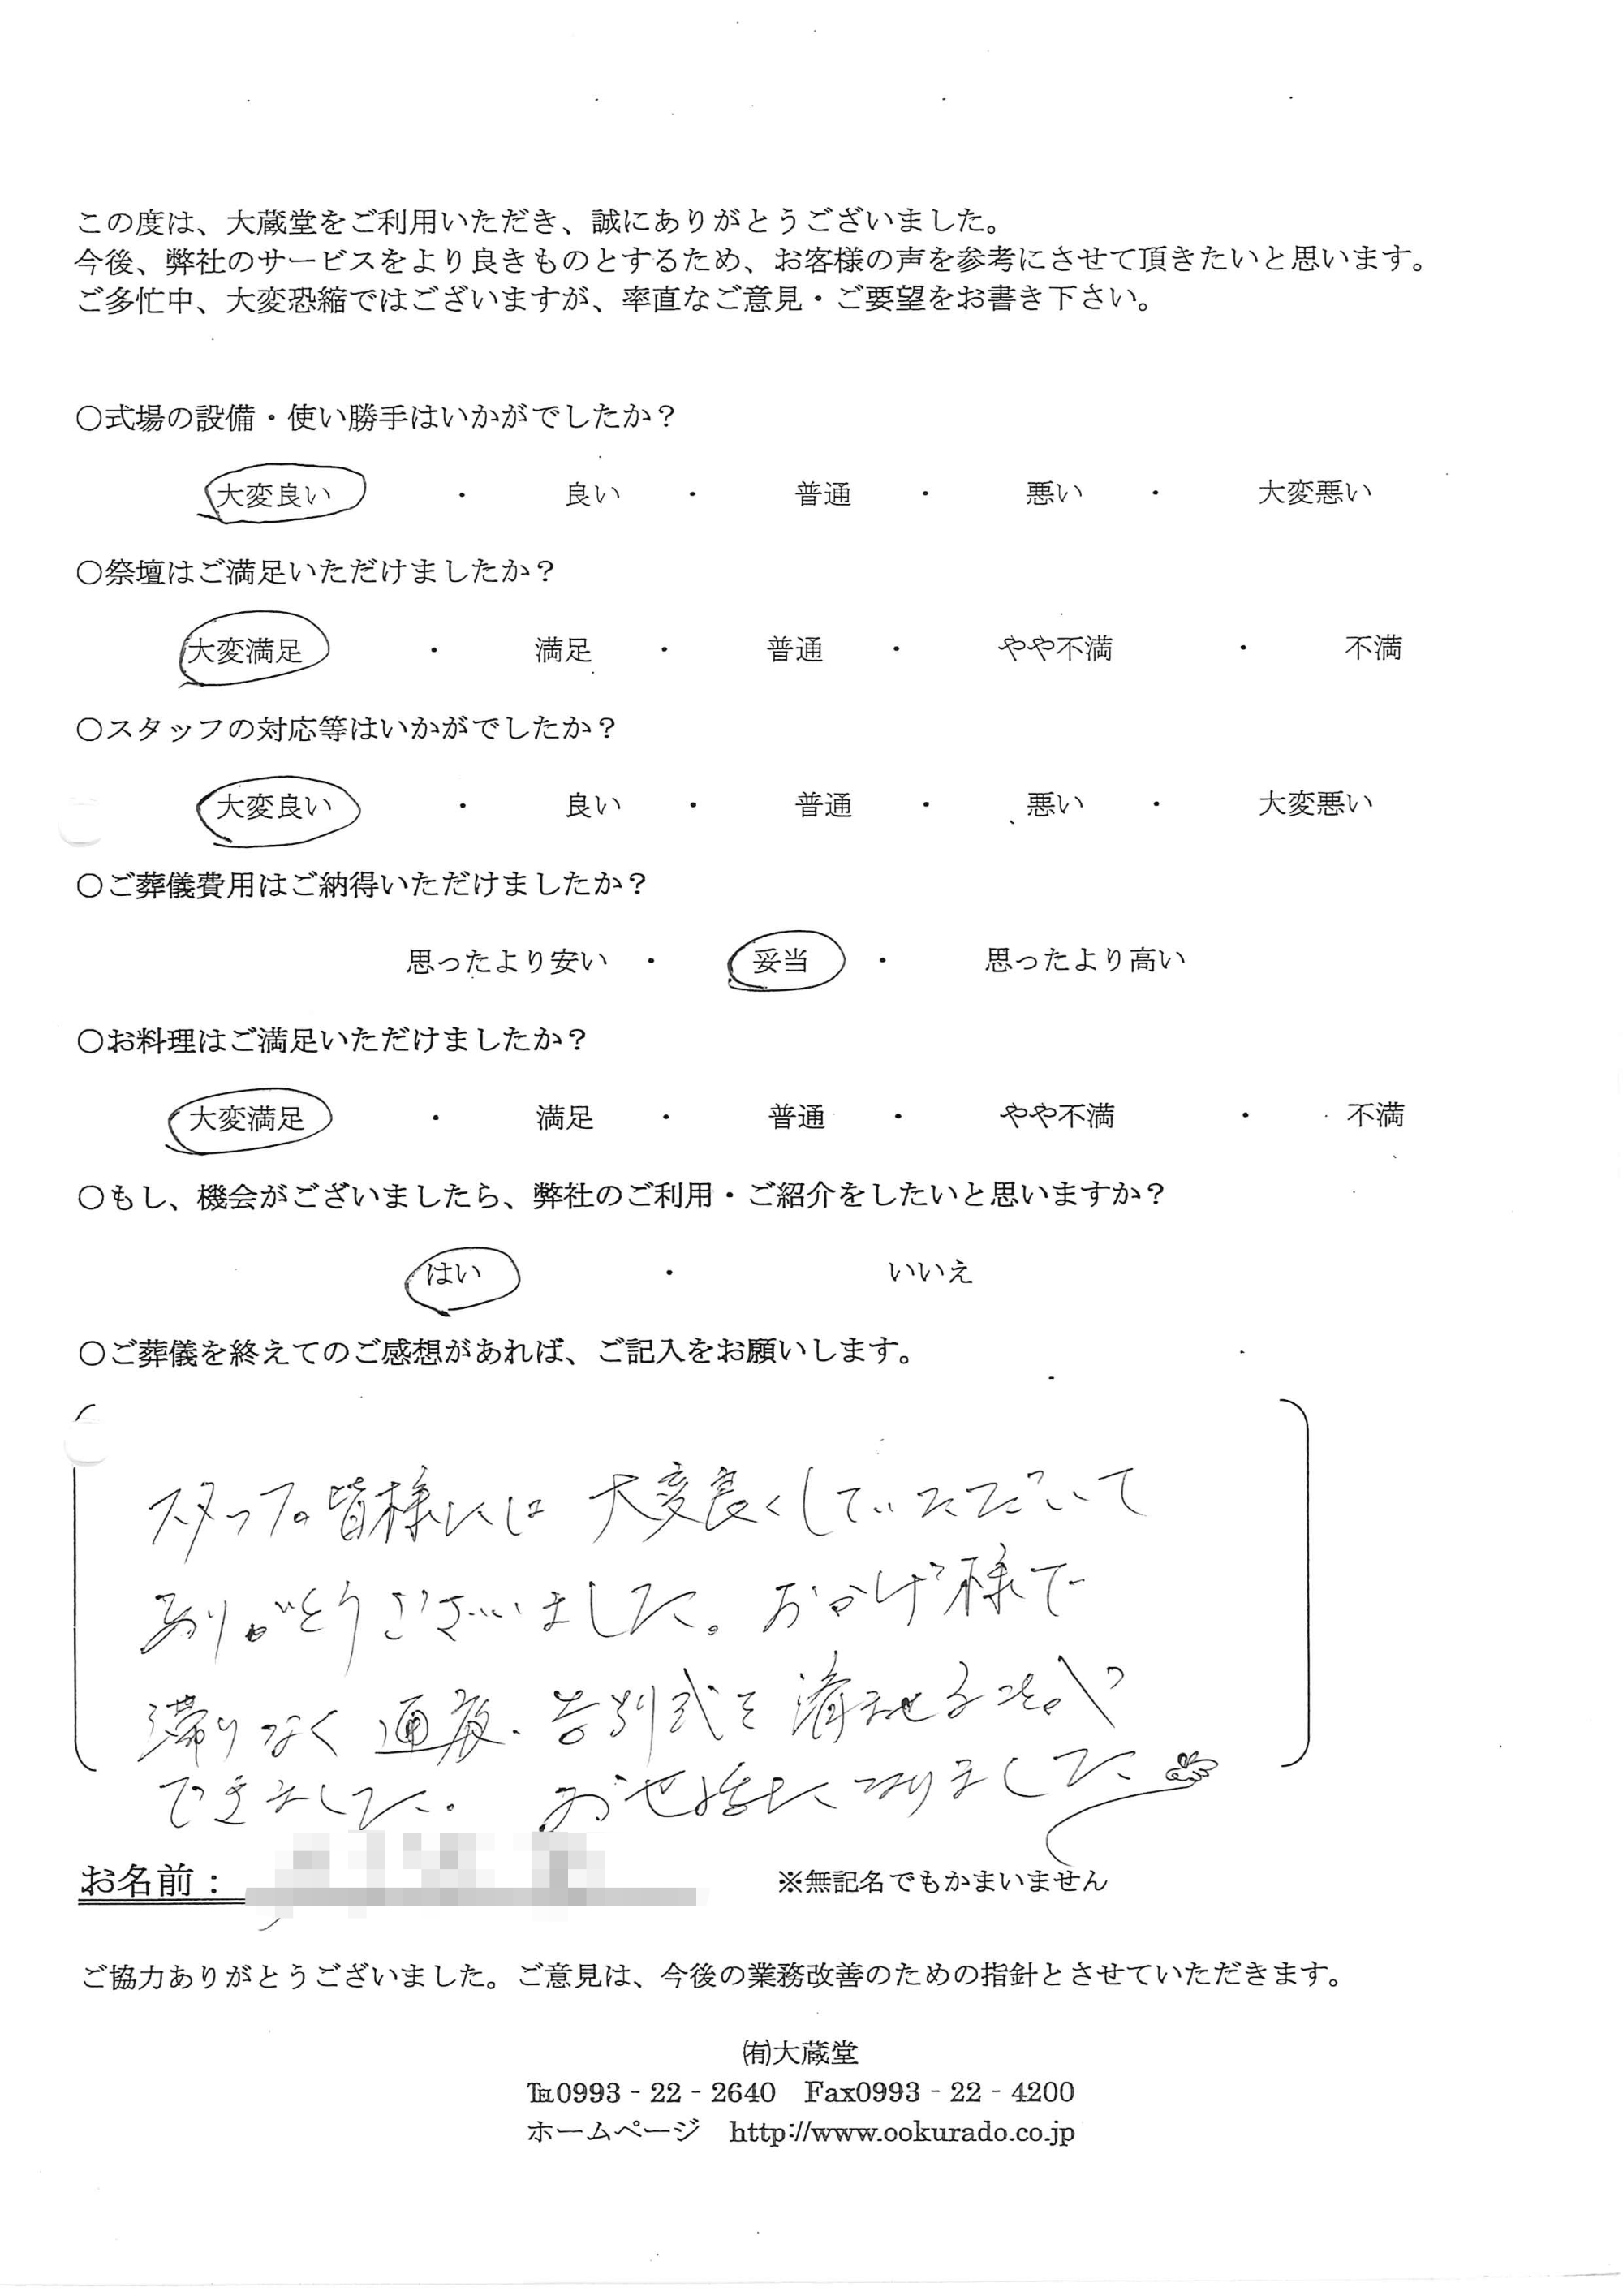 この度は、大蔵堂をご利用いただき、誠にありがとうございました。
今後、弊社のサービスをより良きものとするため、お客様の声を参考にさせて頂きたいと思います。
ご多忙中、大変恐縮ではございますが、率直なご意見・ご要望をお書き下さい。
○式場の設備・使い勝手はいかがでしたか？
大変良い ・ 良い ・ 普通 ・ 悪い ・ 大変悪い
○祭壇はご満足いただけましたか？
大変満足 ・ 満足 ・ 普通 ・ やや不満 ・ 不満
○スタッフの対応等はいかがでしたか？
大変良い ・ 良い ・ 普通 ・ 悪い ・ 大変悪い
○ご葬儀費用はご納得いただけましたか？
思ったより安い ・ 妥当 ・ 思ったより高い
○お料理はご満足いただけましたか？
大変満足 ・ 満足 ・ 普通 ・ やや不満 ・ 不満
○もし、機会がございましたら、弊社のご利用・ご紹介をしたいと思いますか？
はい ・ いいえ
○ご葬儀を終えてのご感想があれば、ご記入をお願いします。
スタッフの皆様には 大変良くしていただいて
ありがとうございました。おかげ様で
滞りなく 通夜、告別式を済ませる事が
できました。 お世話になりました
お名前： ※無記名でもかまいません
ご協力ありがとうございました。ご意見は、今後の業務改善のための指針とさせていただきます。
㈲大蔵堂
℡0993‐22‐2640 Fax0993‐22‐4200
ホームページ http://www.ookurado.co.jp